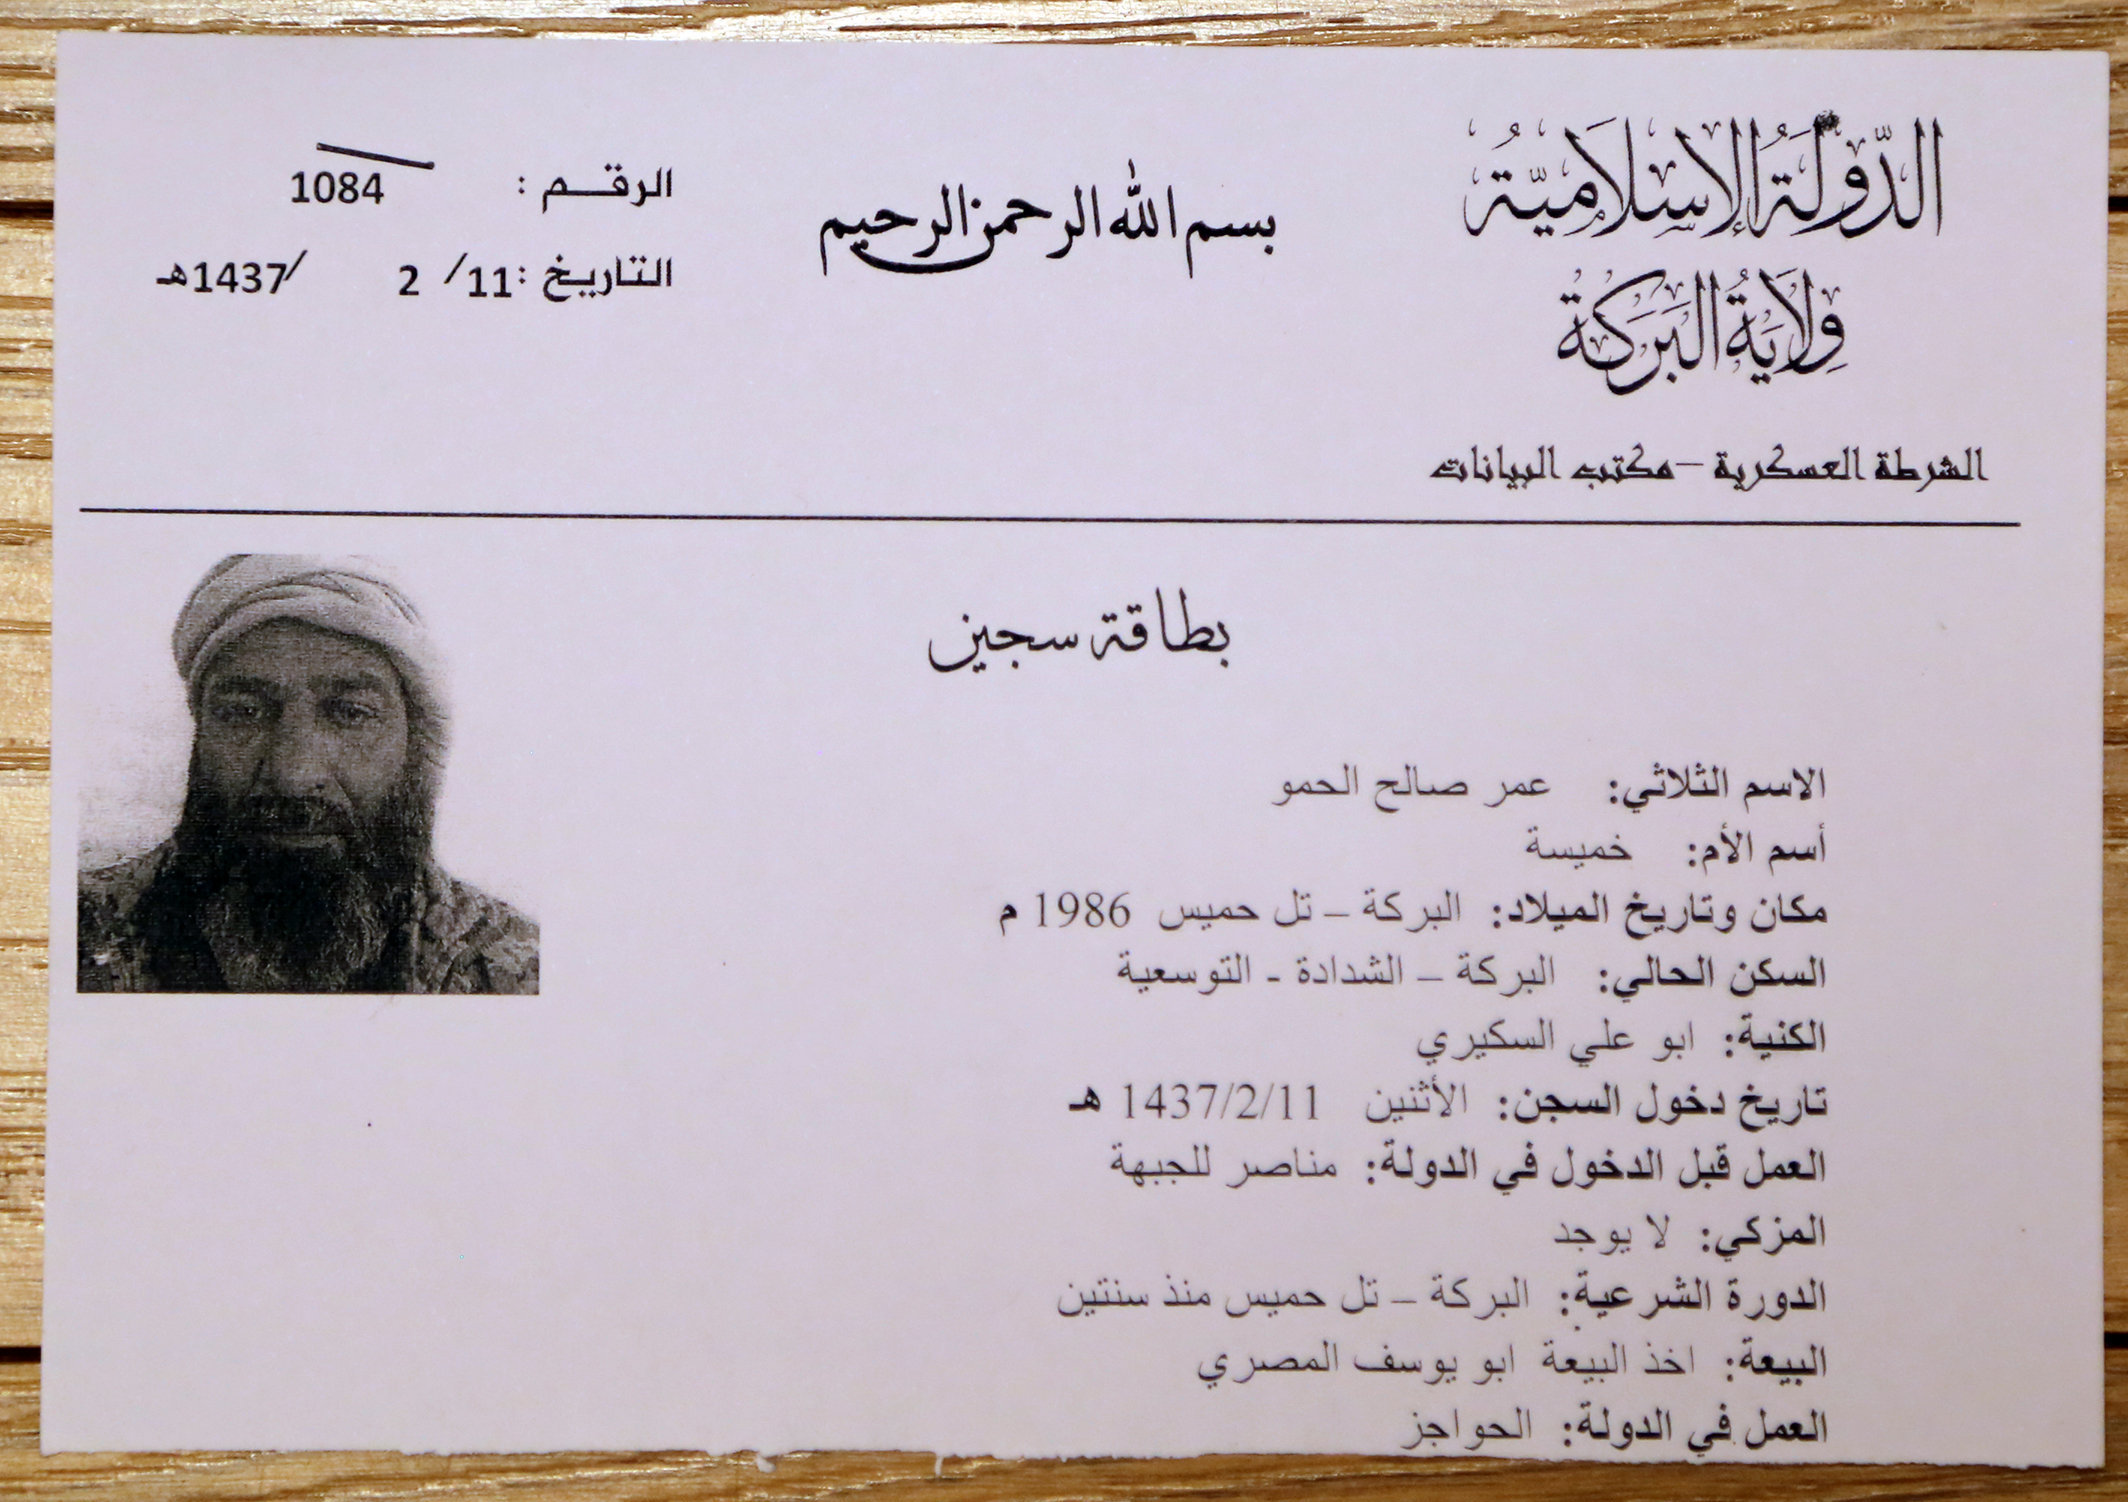 الدَّوْلَةُ الإِسْلَامِيَّةُ
وِلَايَةُ البَرَكَةُ
الشرطة العسكرية – مكتب البيانات
بسم الله الرحمن الرحيم
الرقــم : 1084
التاريخ : 11/ 2 /1437هـ
بطاقة سجين
الاسم الثلاثي: عمر صالح الحمو
أسم الأم: خميسة
مكان وتاريخ الميلاد: البركة – تل حميس 1986 م
السكن الحالي: البركة – الشدادة - التوسعية
الكنية: ابو علي السكيري
تاريخ دخول السجن: الأثنين 1437/2/11 هـ
العمل قبل الدخول في الدولة: مناصر للجبهة
المزكي: لا يوجد
الدورة الشرعية: البركة – تل حميس منذ سنتين
البيعة: اخذ البيعة ابو يوسف المصري
العمل في الدولة: الحواجز